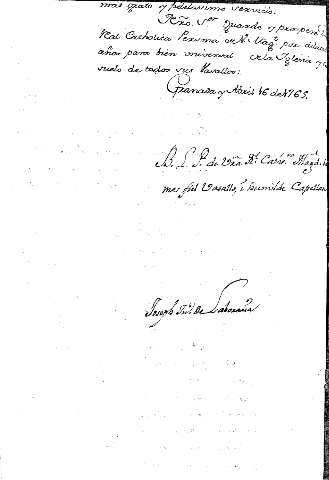 mas grato y fidelissimo servicio.
Ntro. Sor. Guarde y prospere la
Real Catholica Persona de V. Magd. por dilatados
años para bien universal de la Iglesia y con
suelo de todos sus Vasallos:
Granada y Abril 16 de 1765.
B. L. P. de Vra. Rl. Cathca. Magd. su
mas fiel Vasallo, è humilde Capellan
Joseph